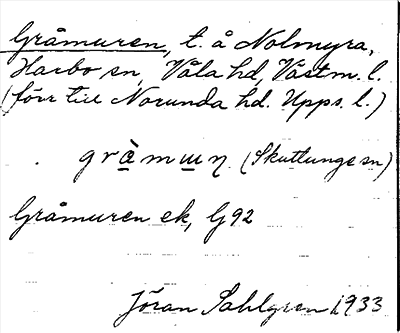 Gråmuren, t. å Nolmyra,
Harbo sn, Våla hd, Västm. l.
(förr till Norunda hd. Upps. l.)
gràmɯɳ (Skuttunge sn)
Gråmuren ek, G92
Jöran Sahlgren 1933